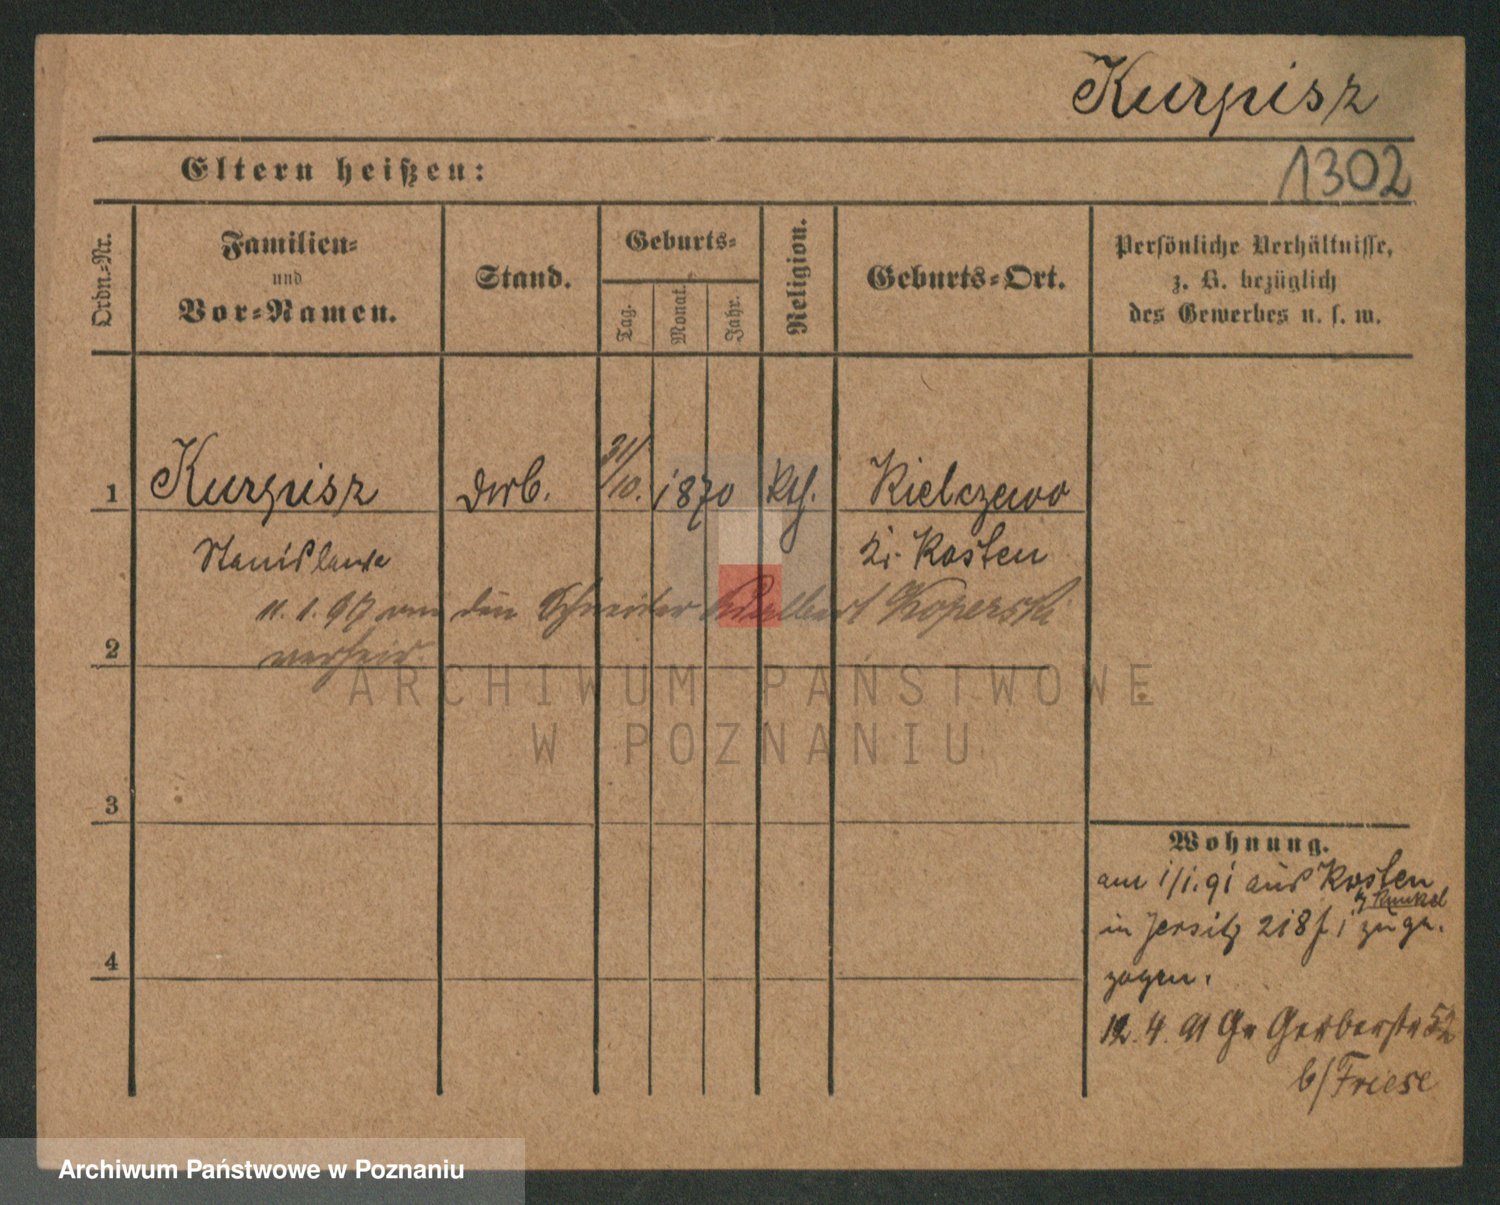 Kurpisz
Eltern heißen:
1302
Ordn.-Nr.
Familien-
und
Vor-Namen.
Stand.
Geburts-
Tag.
Monat.
Jahr.
Religion.
Geburts-Ort.
Persönliche Verhältnisse,
z. B. bezüglich
des Gewerbes u. s. w.
1 Kurpisz 31/10. 1870 Kth. Kielczewo
Stanislawa Kr. Kosten
11. 1. 97 den Schneider Adalbert Koperski
2 verheir.
ARCHIWUM PAŃSTWOWE
W POZNANIU
3
Wohnung.
am 1/1. 91 aus Kosten
b/ Kunkel
in Jersitz 218 zuge-
4 zogen.
12. 4. 91 Gr Gerberstr 52
b/ Friese
Archiwum Państwowe w Poznaniu